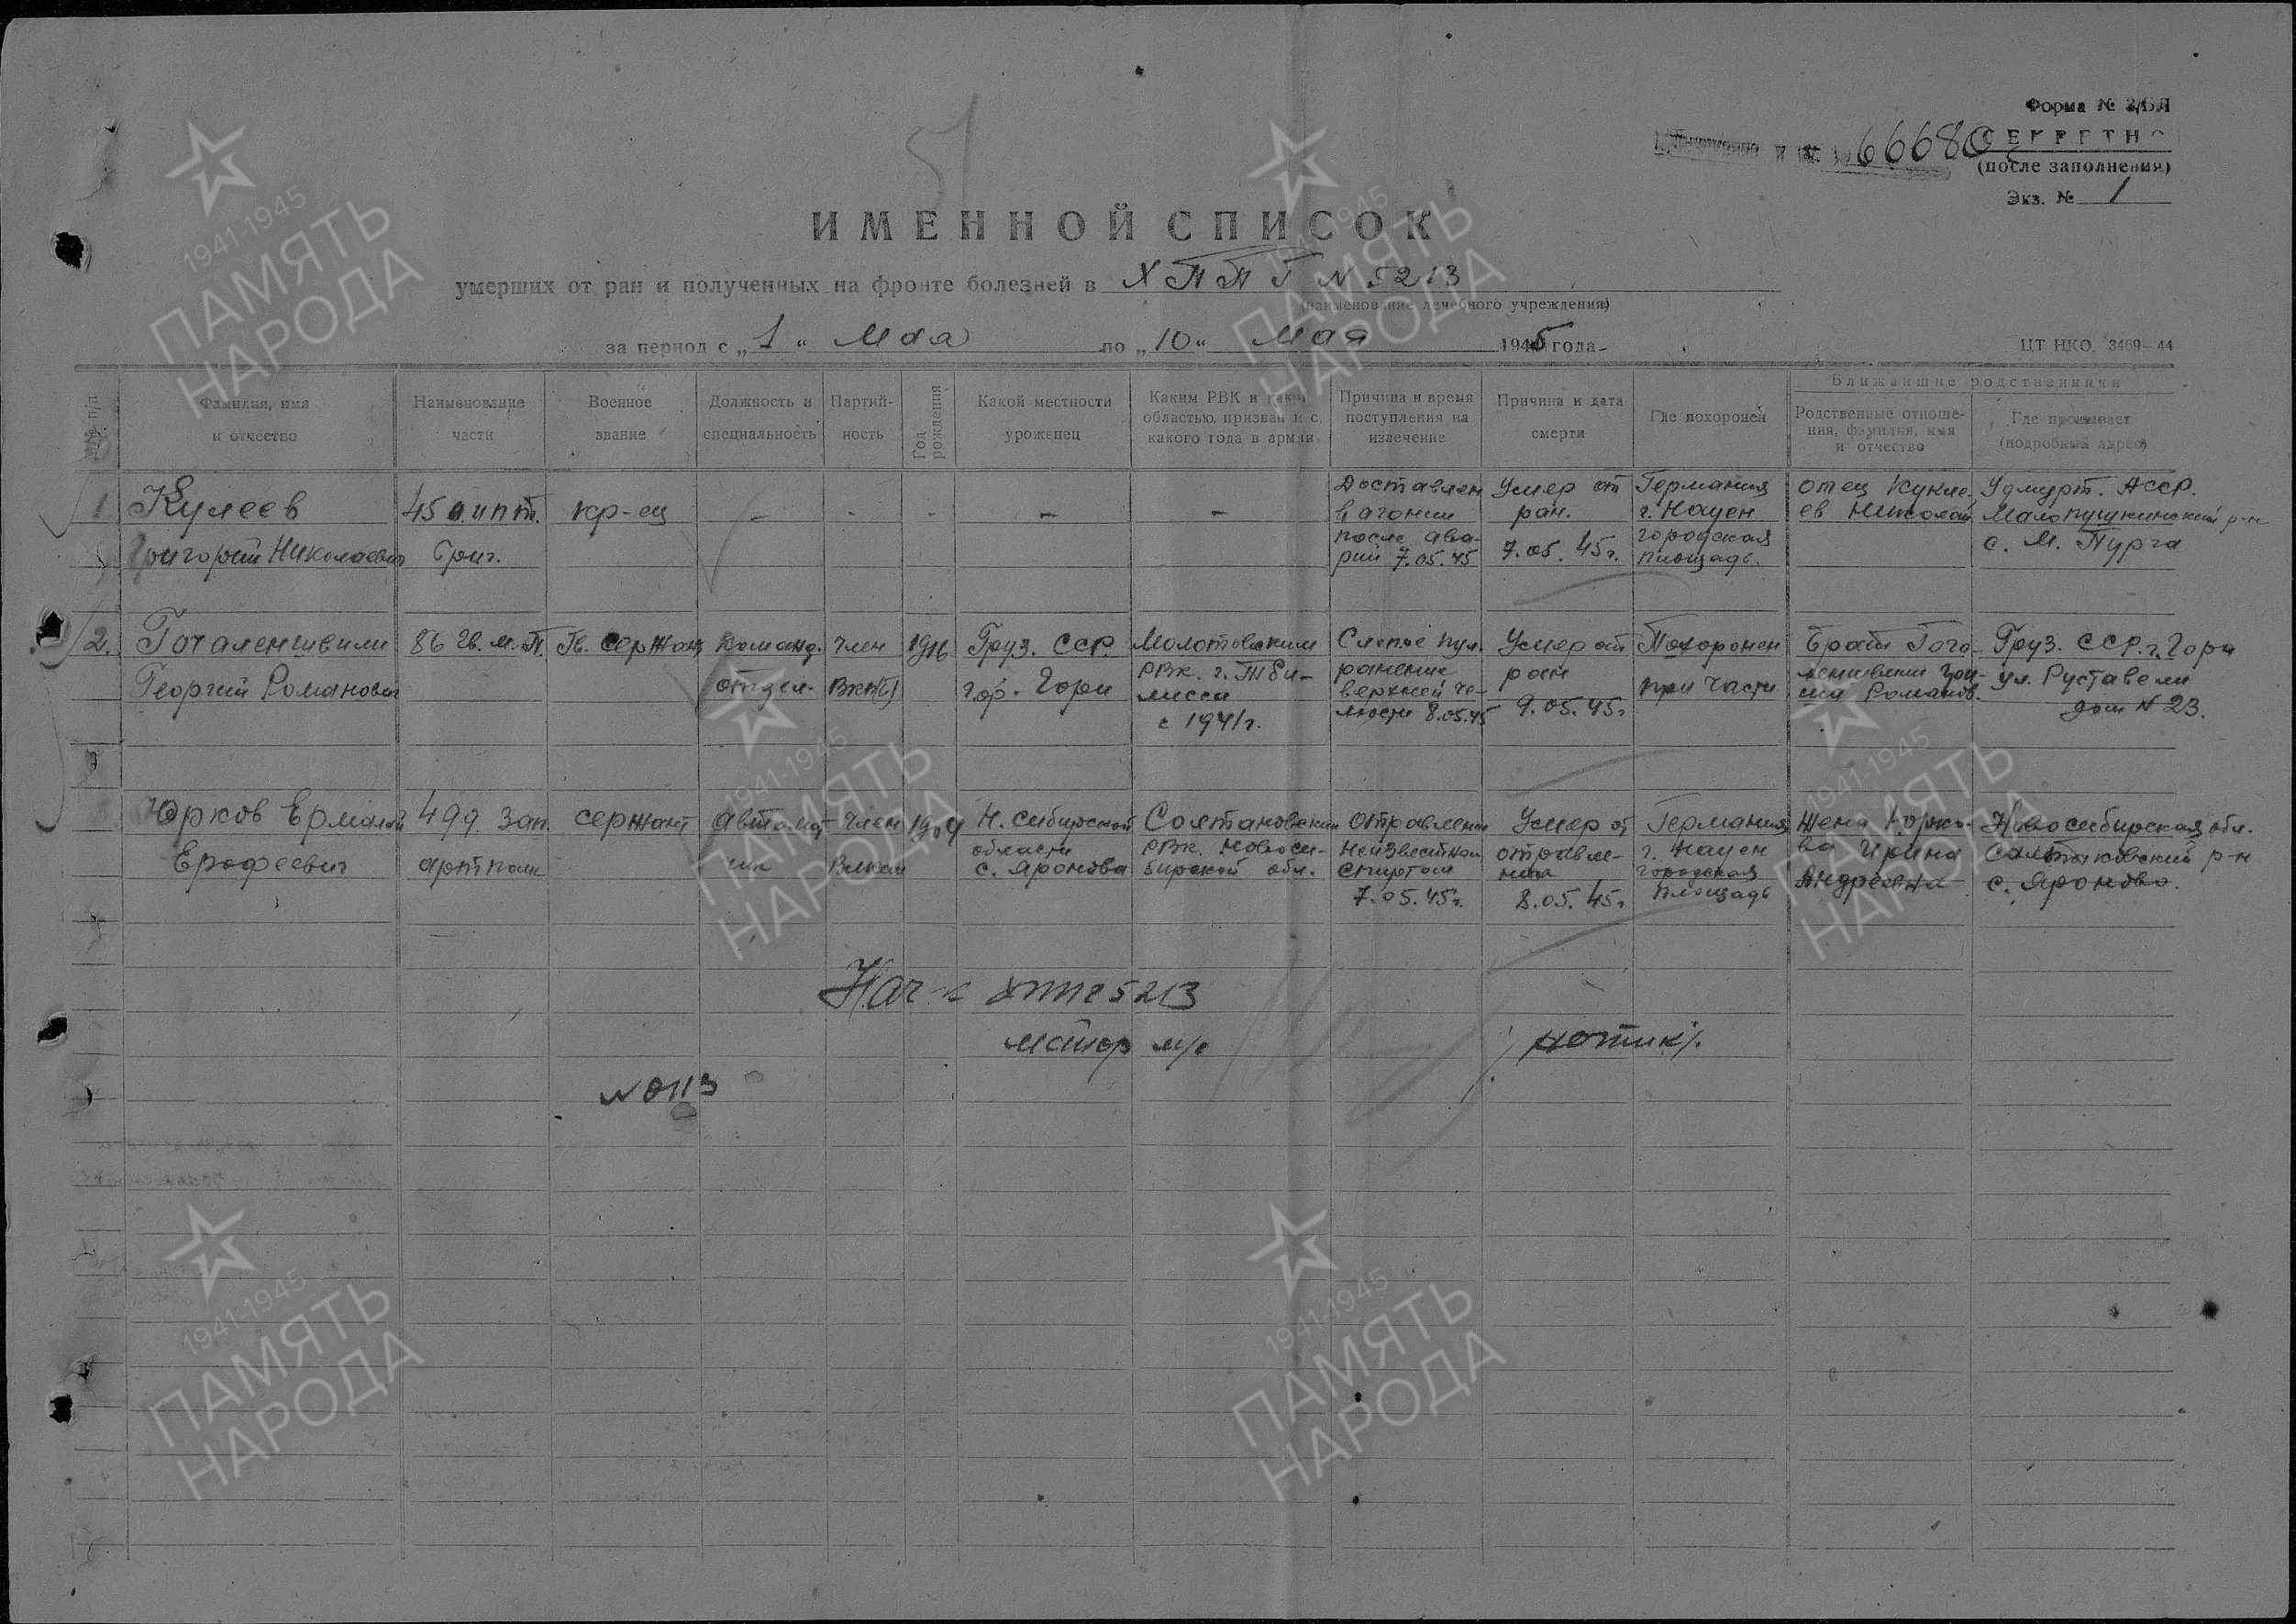 51
Форма № 2/БЛ
66680
СЕКРЕТНО
(после заполнения)
Экз. № 1
ИМЕННОЙ СПИСОК
умерших от ран и полученных на фронте болезней в ХППГ N 5213
(наименование лечебного учреждения)
за период с „1" Мая по „10" Мая 1945 года
ЦТ НКО. 3469-44
№№ п/п
Фамилия, имя и отчество
Наименование части
Военное звание
Должность и специальность
Партийность
Год рождения
Какой местности уроженец
Каким РВК и какой областью призван и с какого года в армии
Причина и время поступления на излечение
Причина и дата смерти
Где похоронен
Ближайшие родственники
Родственные отношения, фамилия, имя и отчество
Где проживает (подробный адрес)
1 Кулеев
Григорий Николаевич
45 оиптб.
бриг.
кр-ец
Доставлен
в агонии
после ава-
рии 7.05.45
Умер от
ран.
7.05.45г.
Германия
г. Науен
городская
площадь.
отец Кукле-
ев Николай
Удмурт. АССР.
Малопушкинский р-н
с. М. Пурга
2. Гогаленшвили
Георгий Романович
86 Гв. м. П.
Гв. сержант
Команд.
отдел.
член
ВКП(б)
1916
Груз. ССР.
гор. Гори
Молотовским
РВК. г. Тби-
лисси
с 1941г.
Слепое пул.
ранение
верхней че-
люсти 8.05.45
Умер от
ран
9.05.45г
Похоронен
при части
Брат Гога-
леншвили
Романов.
Груз. ССР. г. Гори
ул. Руставели
дом N 23.
Юрков Ермолай
Ерофеевич
499 зап.
артполк
сержант
автомат-
чик
член
1904
Н. Сибирской
области
с. Яронова
Солтановским
РВК. Новоси-
бирской обл.
Отравление
неизвестным
спиртом
7.05.45г.
Умер от
отравле-
ния
8.05.45г
Германия
г. Науен
городская
площадь
Жена Юрко-
ва Ирина
Андреевна
Новосибирская обл.
Солтановский р-н
с. Яроново.
Нач-к ХППГ 5213
майор м/с
/Котик/.
N 0113
1941-1945
ПАМЯТЬ
НАРОДА
1941-1945
ПАМЯТЬ
НАРОДА
1941-1945
ПАМЯТЬ
НАРОДА
1941-1945
ПАМЯТЬ
НАРОДА
1941-1945
ПАМЯТЬ
НАРОДА
1941-1945
ПАМЯТЬ
НАРОДА